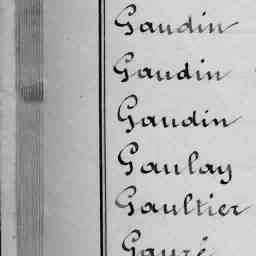 Gaudin
Gaudin
Gaudin
Gaulay
Gaultier
Gauré